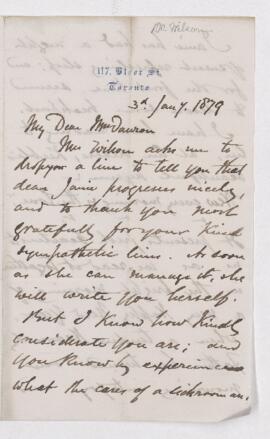 Dr. Wilson
117. Bloor St.
Toronto
3d. Jany. 1879
My Dear Mrs Dawson
Mrs Wilson asks me to
drop you a line to tell you that
dear Janie progresses nicely,
and to thank you most
gratefully for your kind
sympathetic lines. As soon
as she can manage it, she
will write you herself.
But I know how kindly
considerate you are; and
you know by experience
what the cares of a sickroom are.